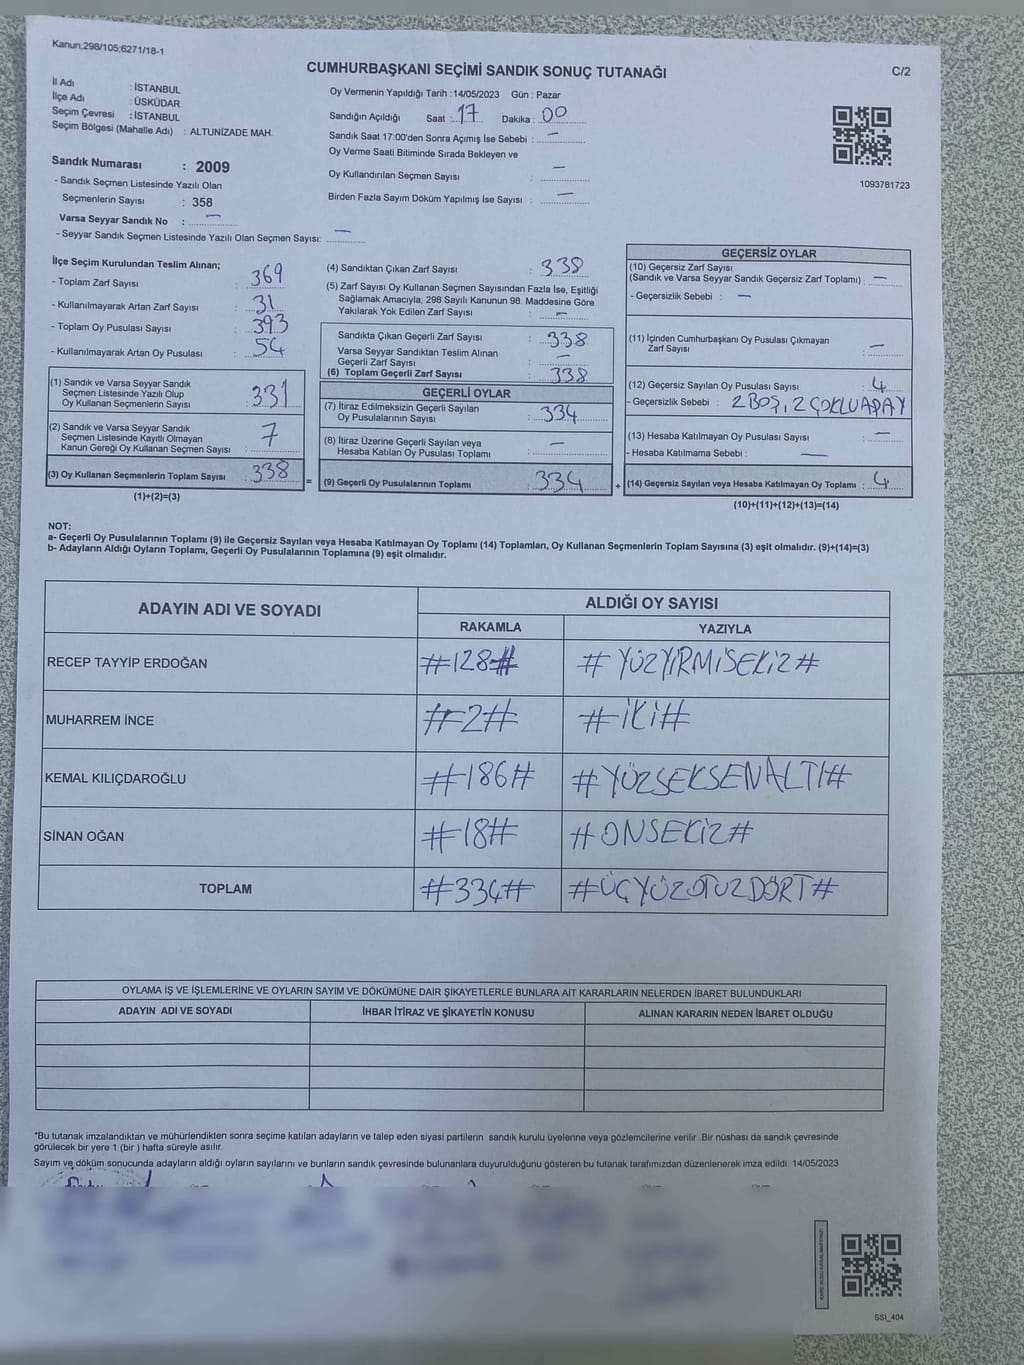 Kanun;298/105;6271/18-1
C/2
CUMHURBAŞKANI SEÇİMİ SANDIK SONUÇ TUTANAĞI
İl Adı : İSTANBUL
İlçe Adı : ÜSKÜDAR
Seçim Çevresi : İSTANBUL
Seçim Bölgesi (Mahalle Adı) : ALTUNİZADE MAH.
Sandık Numarası : 2009
- Sandık Seçmen Listesinde Yazılı Olan
Seçmenlerin Sayısı : 358
Varsa Seyyar Sandık No : —
- Seyyar Sandık Seçmen Listesinde Yazılı Olan Seçmen Sayısı: —
Oy Vermenin Yapıldığı Tarih : 14/05/2023 Gün : Pazar
Sandığın Açıldığı Saat : 17 Dakika : 00
Sandık Saat 17:00'den Sonra Açımış İse Sebebi : —
Oy Verme Saati Bitiminde Sırada Bekleyen ve
Oy Kullandırılan Seçmen Sayısı : —
Birden Fazla Sayım Döküm Yapılmış İse Sayısı : —
1093781723
İlçe Seçim Kurulundan Teslim Alınan;
- Toplam Zarf Sayısı : 369
- Kullanılmayarak Artan Zarf Sayısı : 31
- Toplam Oy Pusulası Sayısı : 393
- Kullanılmayarak Artan Oy Pusulası : 54
(1) Sandık ve Varsa Seyyar Sandık
Seçmen Listesinde Yazılı Olup
Oy Kullanan Seçmenlerin Sayısı : 331
(2) Sandık ve Varsa Seyyar Sandık
Seçmen Listesinde Kayıtlı Olmayan
Kanun Gereği Oy Kullanan Seçmen Sayısı : 7
(3) Oy Kullanan Seçmenlerin Toplam Sayısı : 338
(1)+(2)=(3)
(4) Sandıktan Çıkan Zarf Sayısı : 338
(5) Zarf Sayısı Oy Kullanan Seçmen Sayısından Fazla İse, Eşitliği
Sağlamak Amacıyla, 298 Sayılı Kanunun 98. Maddesine Göre
Yakılarak Yok Edilen Zarf Sayısı : —
Sandıkta Çıkan Geçerli Zarf Sayısı : 338
Varsa Seyyar Sandıktan Teslim Alınan
Geçerli Zarf Sayısı : —
(6) Toplam Geçerli Zarf Sayısı : 338
GEÇERLİ OYLAR
(7) İtiraz Edilmeksizin Geçerli Sayılan
Oy Pusulalarının Sayısı : 334
(8) İtiraz Üzerine Geçerli Sayılan veya
Hesaba Katılan Oy Pusulası Toplamı : —
= (9) Geçerli Oy Pusulalarının Toplamı : 334
GEÇERSİZ OYLAR
(10) Geçersiz Zarf Sayısı
(Sandık ve Varsa Seyyar Sandık Geçersiz Zarf Toplamı) : —
- Geçersizlik Sebebi : —
(11) İçinden Cumhurbaşkanı Oy Pusulası Çıkmayan
Zarf Sayısı : —
(12) Geçersiz Sayılan Oy Pusulası Sayısı : 4
- Geçersizlik Sebebi : 2 BOŞ, 2 ÇOKLU ADAY
(13) Hesaba Katılmayan Oy Pusulası Sayısı : —
- Hesaba Katılmama Sebebi : —
+ (14) Geçersiz Sayılan veya Hesaba Katılmayan Oy Toplamı : 4
(10)+(11)+(12)+(13)=(14)
NOT:
a- Geçerli Oy Pusulalarının Toplamı (9) ile Geçersiz Sayılan veya Hesaba Katılmayan Oy Toplamı (14) Toplamları, Oy Kullanan Seçmenlerin Toplam Sayısına (3) eşit olmalıdır. (9)+(14)=(3)
b- Adayların Aldığı Oyların Toplamı, Geçerli Oy Pusulalarının Toplamına (9) eşit olmalıdır.
ADAYIN ADI VE SOYADI
ALDIĞI OY SAYISI
RAKAMLA YAZIYLA
RECEP TAYYİP ERDOĞAN #128# #YÜZYİRMİSEKİZ#
MUHARREM İNCE #2# #İKİ#
KEMAL KILIÇDAROĞLU #186# #YÜZSEKSENALTI#
SİNAN OĞAN #18# #ONSEKİZ#
TOPLAM #334# #ÜÇYÜZOTUZDÖRT#
OYLAMA İŞ VE İŞLEMLERİNE VE OYLARIN SAYIM VE DÖKÜMÜNE DAİR ŞİKAYETLERLE BUNLARA AİT KARARLARIN NELERDEN İBARET BULUNDUKLARI
ADAYIN ADI VE SOYADI İHBAR İTİRAZ VE ŞİKAYETİN KONUSU ALINAN KARARIN NEDEN İBARET OLDUĞU
*Bu tutanak imzalandıktan ve mühürlendikten sonra seçime katılan adayların ve talep eden siyasi partilerin sandık kurulu üyelerine veya gözlemcilerine verilir. Bir nüshası da sandık çevresinde
görülecek bir yere 1 (bir ) hafta süreyle asılır.
Sayım ve döküm sonucunda adayların aldığı oyların sayılarını ve bunların sandık çevresinde bulunanlara duyurulduğunu gösteren bu tutanak tarafımızdan düzenlenerek imza edildi. 14/05/2023
SSI_404